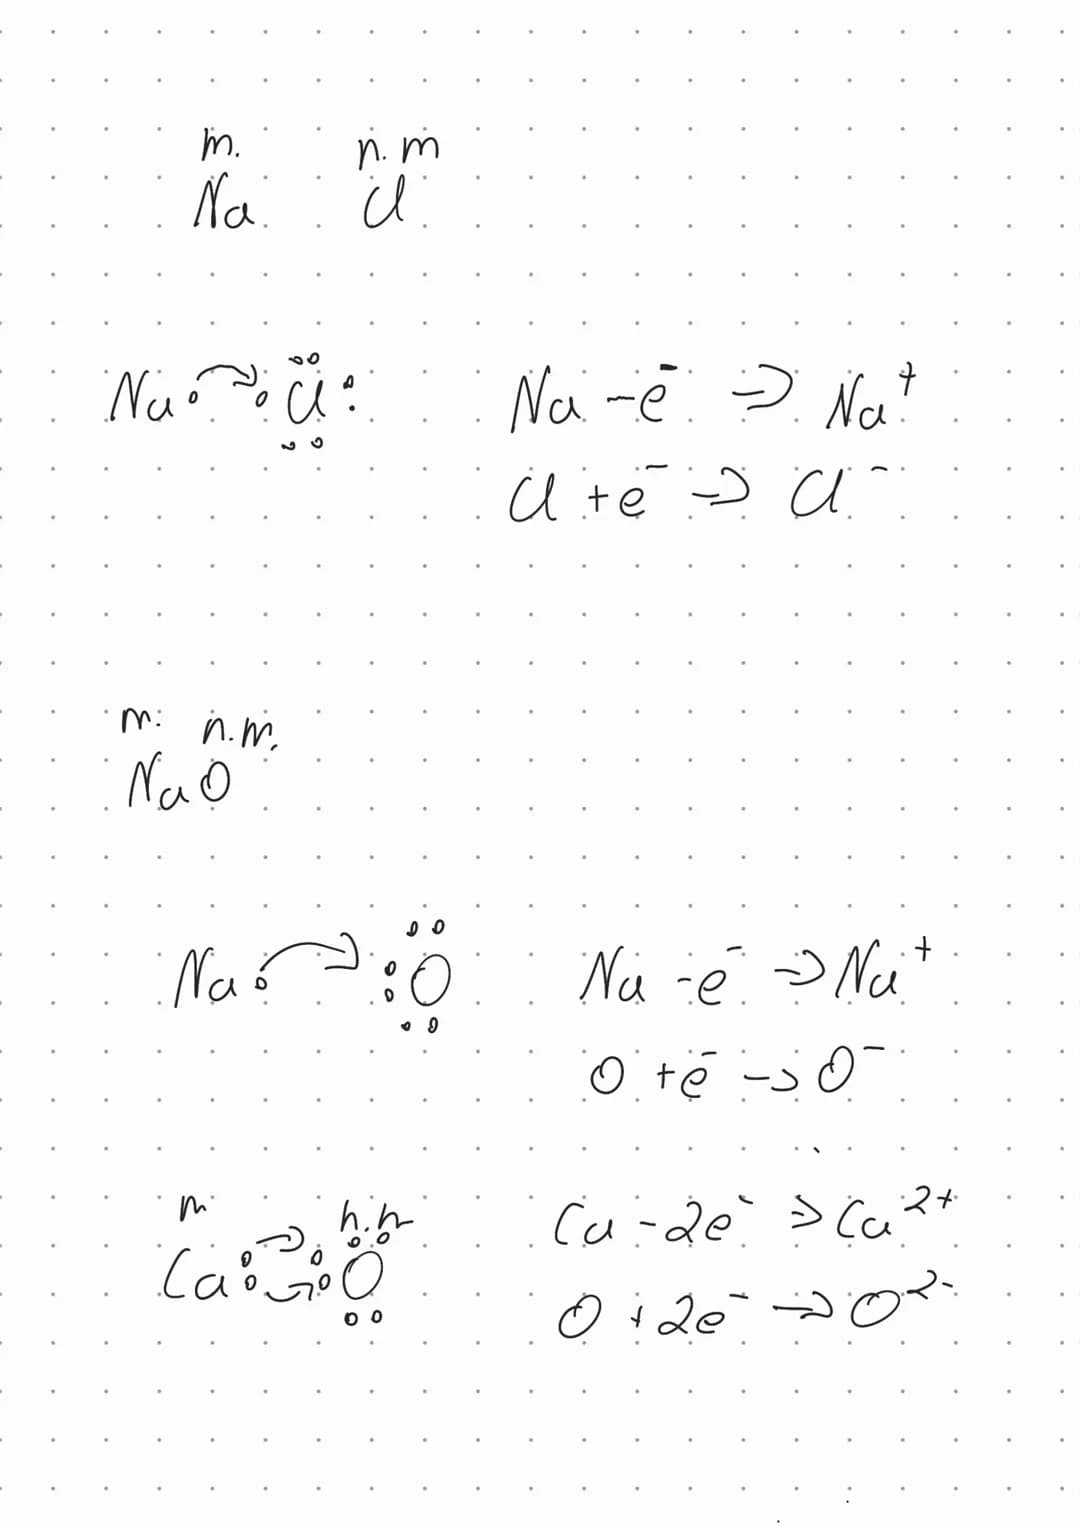 m. n. m
Na Cl
Na Cl Na - e⁻ → Na⁺
Cl + e⁻ → Cl⁻
m. n.m.
Na O
Na O Na - e⁻ → Na⁺
O + e⁻ → O⁻
m h.h
Ca O Ca - 2e⁻ → Ca²⁺
O + 2e⁻ → O²⁻